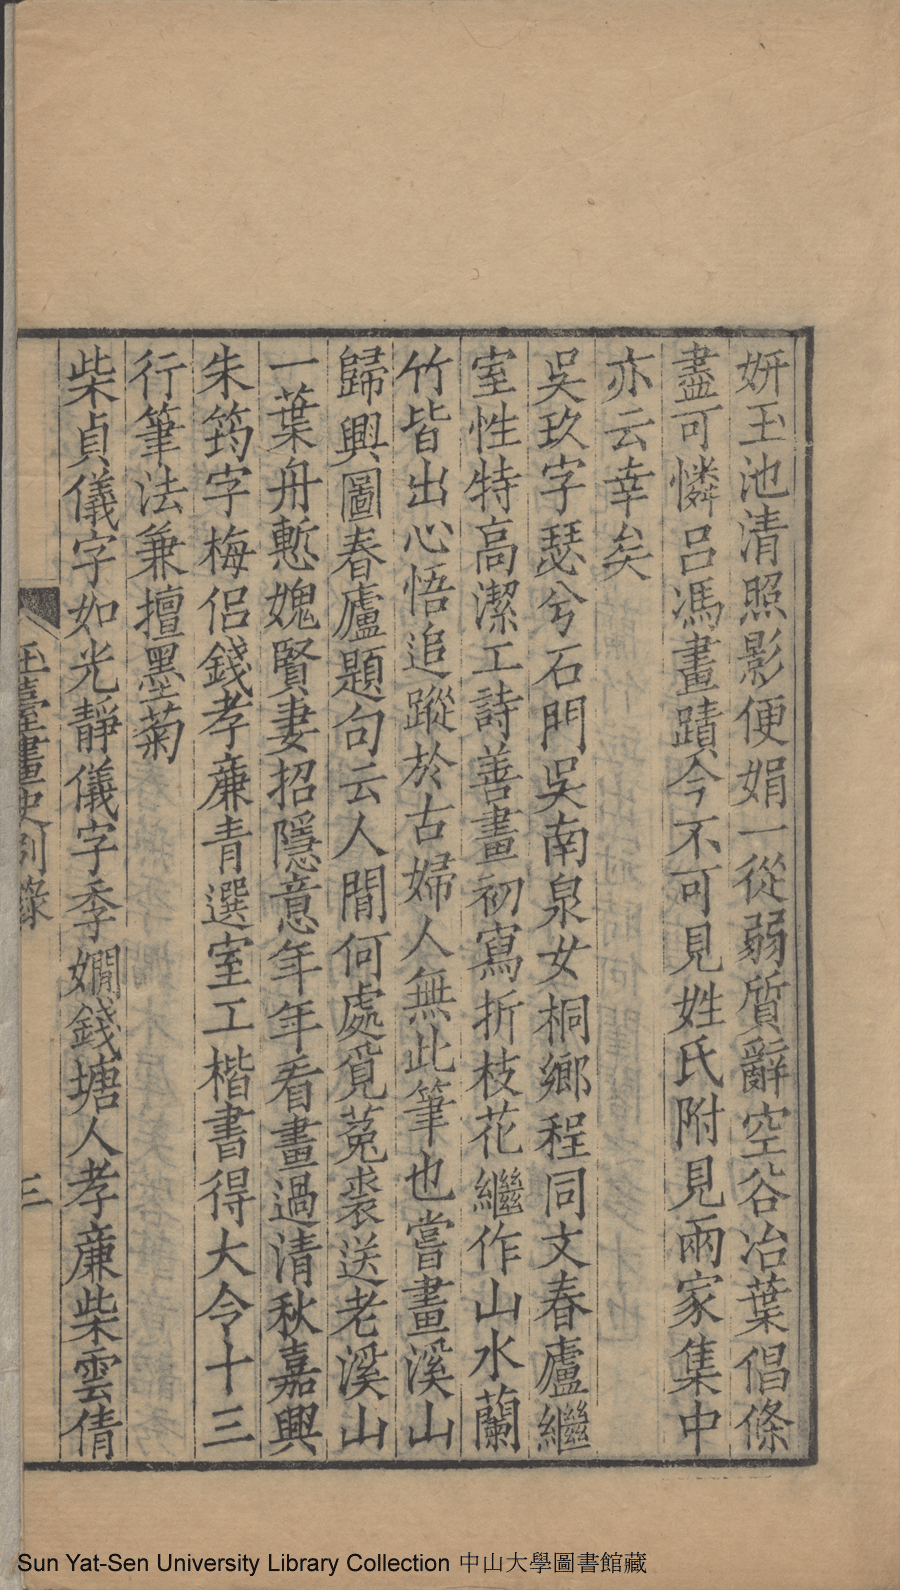 妍玉池清照影便娟一從弱質辭空谷冶葉倡條
盡可憐呂馮畫蹟今不可見姓氏附見兩家集中
亦云幸矣
吳玖字瑟兮石門吳南泉女桐鄉程同文春廬繼
室性特高潔工詩善畫初寫折枝花繼作山水蘭
竹皆出心悟追蹤於古婦人無此筆也嘗畫溪山
歸興圖春廬題句云人間何處覓菟裘送老溪山
一葉舟慙媿賢妻招隱意年年看畫過清秋嘉興
朱筠字梅侶錢孝廉青選室工楷書得大令十三
行筆法兼擅墨菊
柴貞儀字如光靜儀字季嫺錢塘人孝廉柴雲倩
玉臺畫史別錄 三
Sun Yat-Sen University Library Collection 中山大學圖書館藏